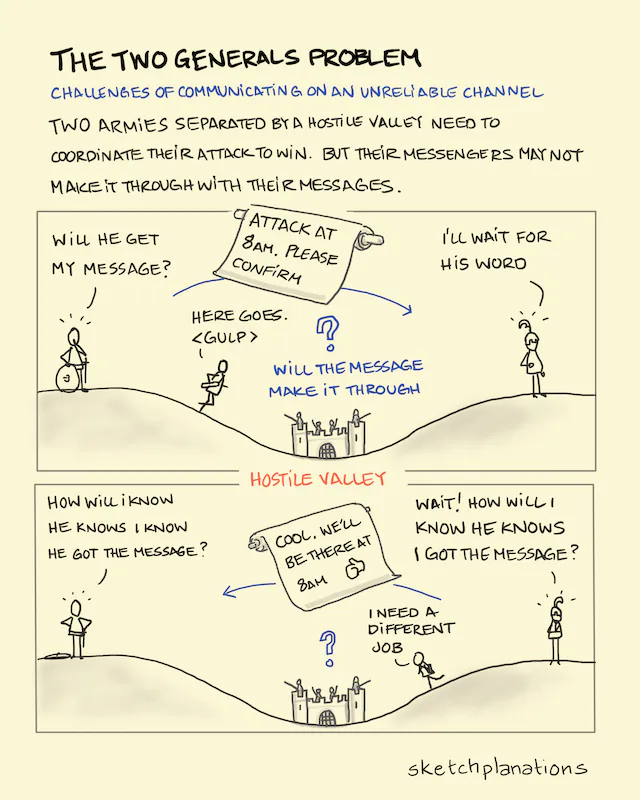 THE TWO GENERALS PROBLEM
CHALLENGES OF COMMUNICATING ON AN UNRELIABLE CHANNEL
TWO ARMIES SEPARATED BY A HOSTILE VALLEY NEED TO
COORDINATE THEIR ATTACK TO WIN. BUT THEIR MESSENGERS MAY NOT
MAKE IT THROUGH WITH THEIR MESSAGES.
WILL HE GET
MY MESSAGE?
ATTACK AT
8AM. PLEASE
CONFIRM
I'LL WAIT FOR
HIS WORD
HERE GOES.
<GULP>
?
WILL THE MESSAGE
MAKE IT THROUGH
HOSTILE VALLEY
HOW WILL I KNOW
HE KNOWS I KNOW
HE GOT THE MESSAGE?
COOL. WE'LL
BE THERE AT
8AM
WAIT! HOW WILL I
KNOW HE KNOWS
I GOT THE MESSAGE?
I NEED A
DIFFERENT
JOB
?
sketchplanations